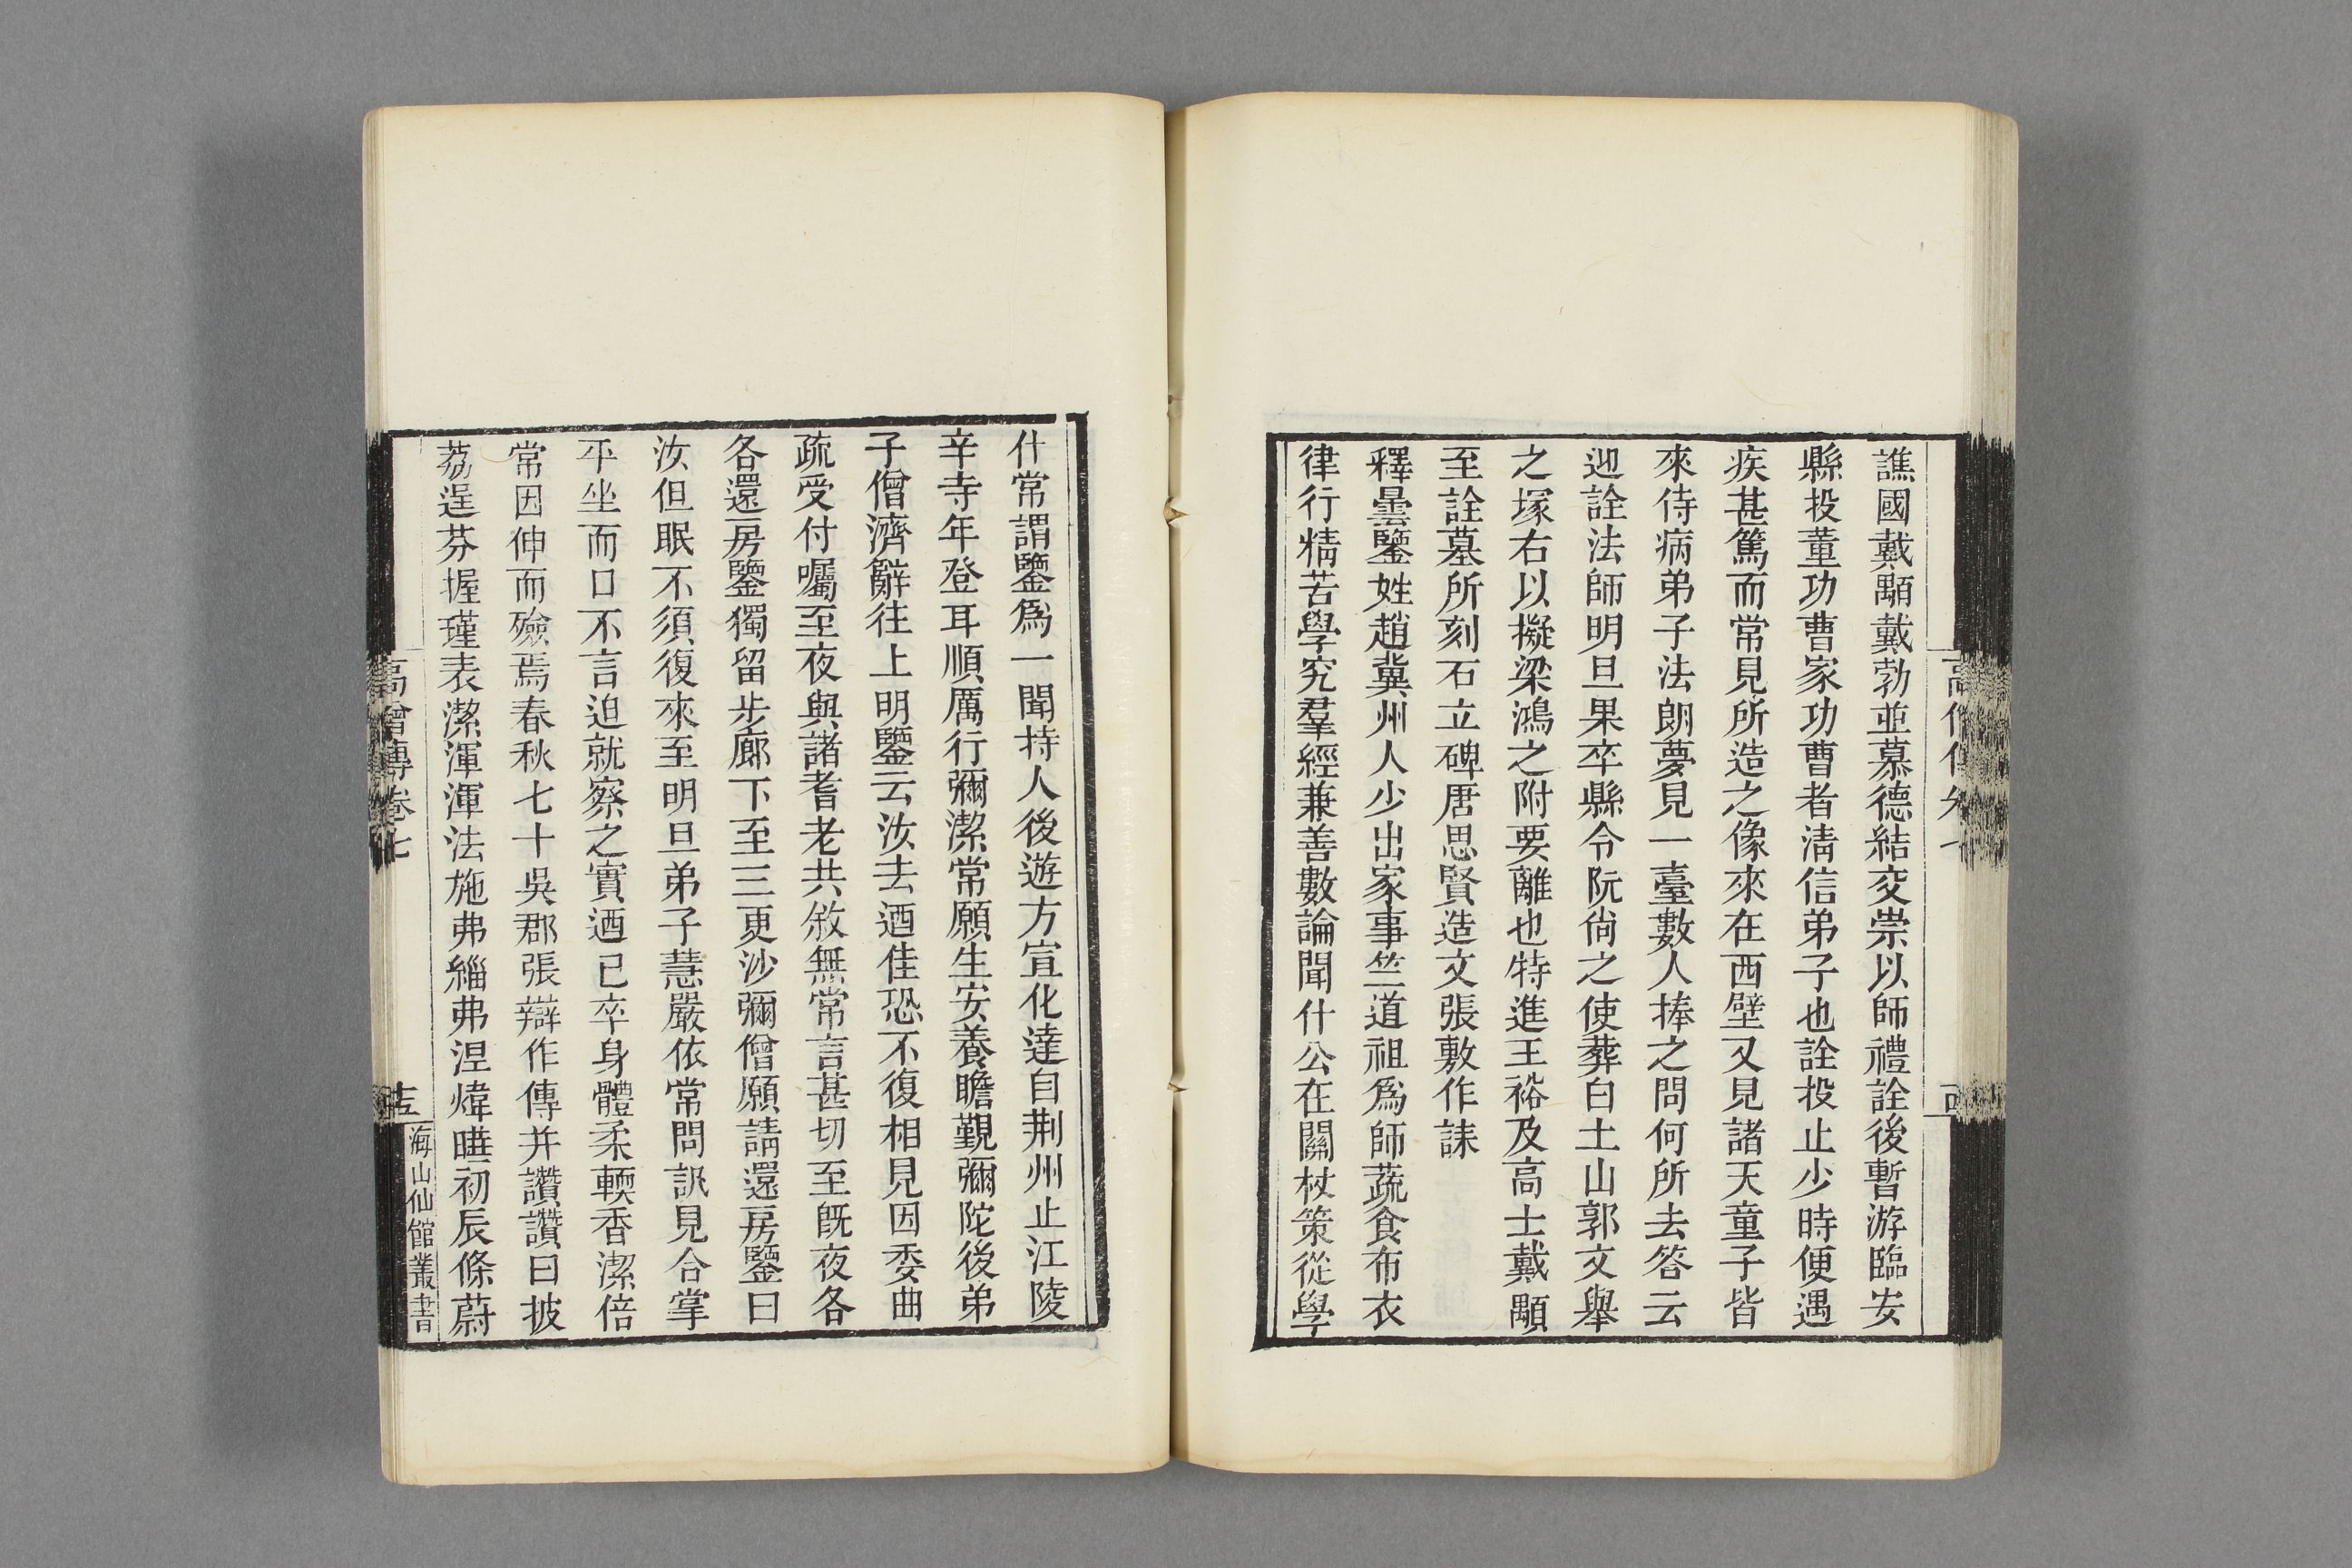 譙國戴顒戴勃並慕德結交崇以師禮詮後暫游臨安
縣投董功曹家功曹者清信弟子也詮投止少時便遇
疾甚篤而常見所造之像來在西壁又見諸天童子皆
來侍病弟子法朗夢見一臺數人捧之問何所去答云
迎詮法師明旦果卒縣令阮尚之使葬白土山郭文舉
之塚右以擬梁鴻之附要離也特進王裕及高士戴顒
至詮墓所刻石立碑居思賢造文張敷作誄
釋曇鑒姓趙冀州人少出家事竺道祖為師蔬食布衣
律行精苦學究羣經兼善數論聞什公在關杖策從學
什常謂鑒為一聞持人後遊方宣化達自荆州止江陵
辛寺年登耳順厲行彌潔常願生安養瞻覲彌陀後弟
子僧濟辭往上明鑒云汝去迺佳恐不復相見因委曲
疏受付囑至夜與諸耆老共敘無常言甚切至既夜各
各還房鑒獨留步廊下至三更沙彌僧願請還房鑒曰
汝但眠不須復來至明旦弟子慧嚴依常問訊見合掌
平坐而口不言迫就察之實迺已卒身體柔輭香潔倍
常因伸而殮焉春秋七十吳郡張辯作傳并讚讚曰披
荔逞芬握瑾表潔渾渾法施弗緇弗涅煒曄初辰條蔚
高僧傳卷七
十五
海山仙館叢書